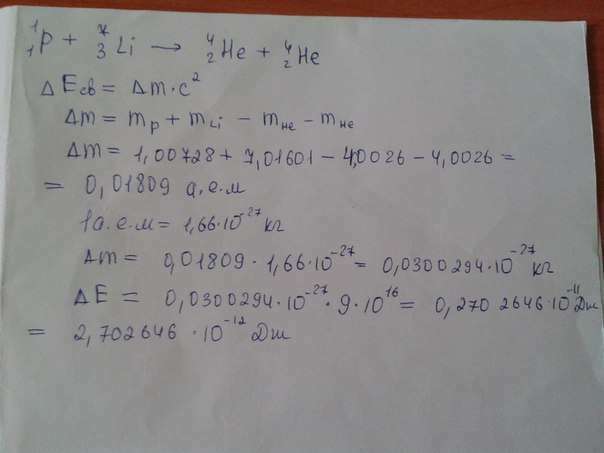 ¹₁p + ⁷₃Li → ⁴₂He + ⁴₂He
ΔEсв = Δm·c²
Δm = mp + mLi − mHe − mHe
Δm = 1,00728 + 7,01601 − 4,0026 − 4,0026 =
= 0,01809 а.е.м
1а.е.м = 1,66·10⁻²⁷ кг
Δm = 0,01809 · 1,66·10⁻²⁷ = 0,0300294·10⁻²⁷ кг
ΔE = 0,0300294·10⁻²⁷ · 9·10¹⁶ = 0,2702646·10⁻¹¹ Дж
= 2,702646 · 10⁻¹² Дж